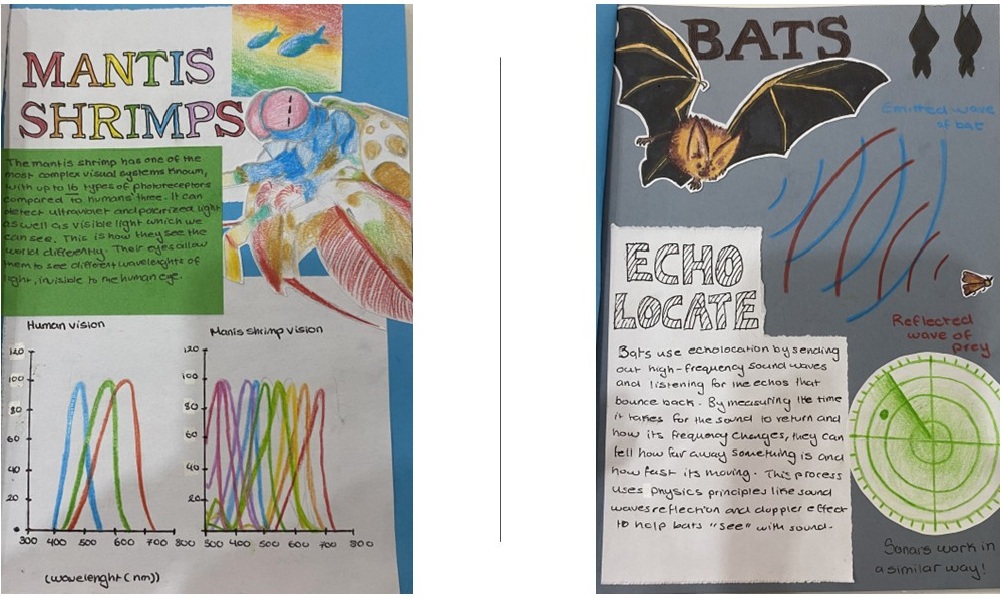 MANTIS
SHRIMPS
The mantis shrimp has one of the
most complex visual systems known,
with up to 16 types of photoreceptors
compared to humans' three. It can
detect ultraviolet and polarized light
as well as visible light which we
can see. This is how they see the
world differently. Their eyes allow
them to see different wavelenghts of
light, invisible to the human eye.
Human vision
120
100
80
60
40
20
300 400 500 600 700 800
(wavelenght (nm))
Manis shrimp vision
120
100
80
60
40
20
300 400 500 600 700 800
BATS
Emitted wave
of bat
ECHO
LOCATE
Reflected
wave of
prey
Bats use echolocation by sending
out high-frequency sound waves
and listening for the echos that
bounce back. By measuring the time
it takes for the sound to return and
how its frequency changes, they can
tell how far away something is and
how fast its moving. This process
uses physics principles like sound
waves reflection and doppler effect
to help bats "see" with sound.
Sonars work in
a similar way!